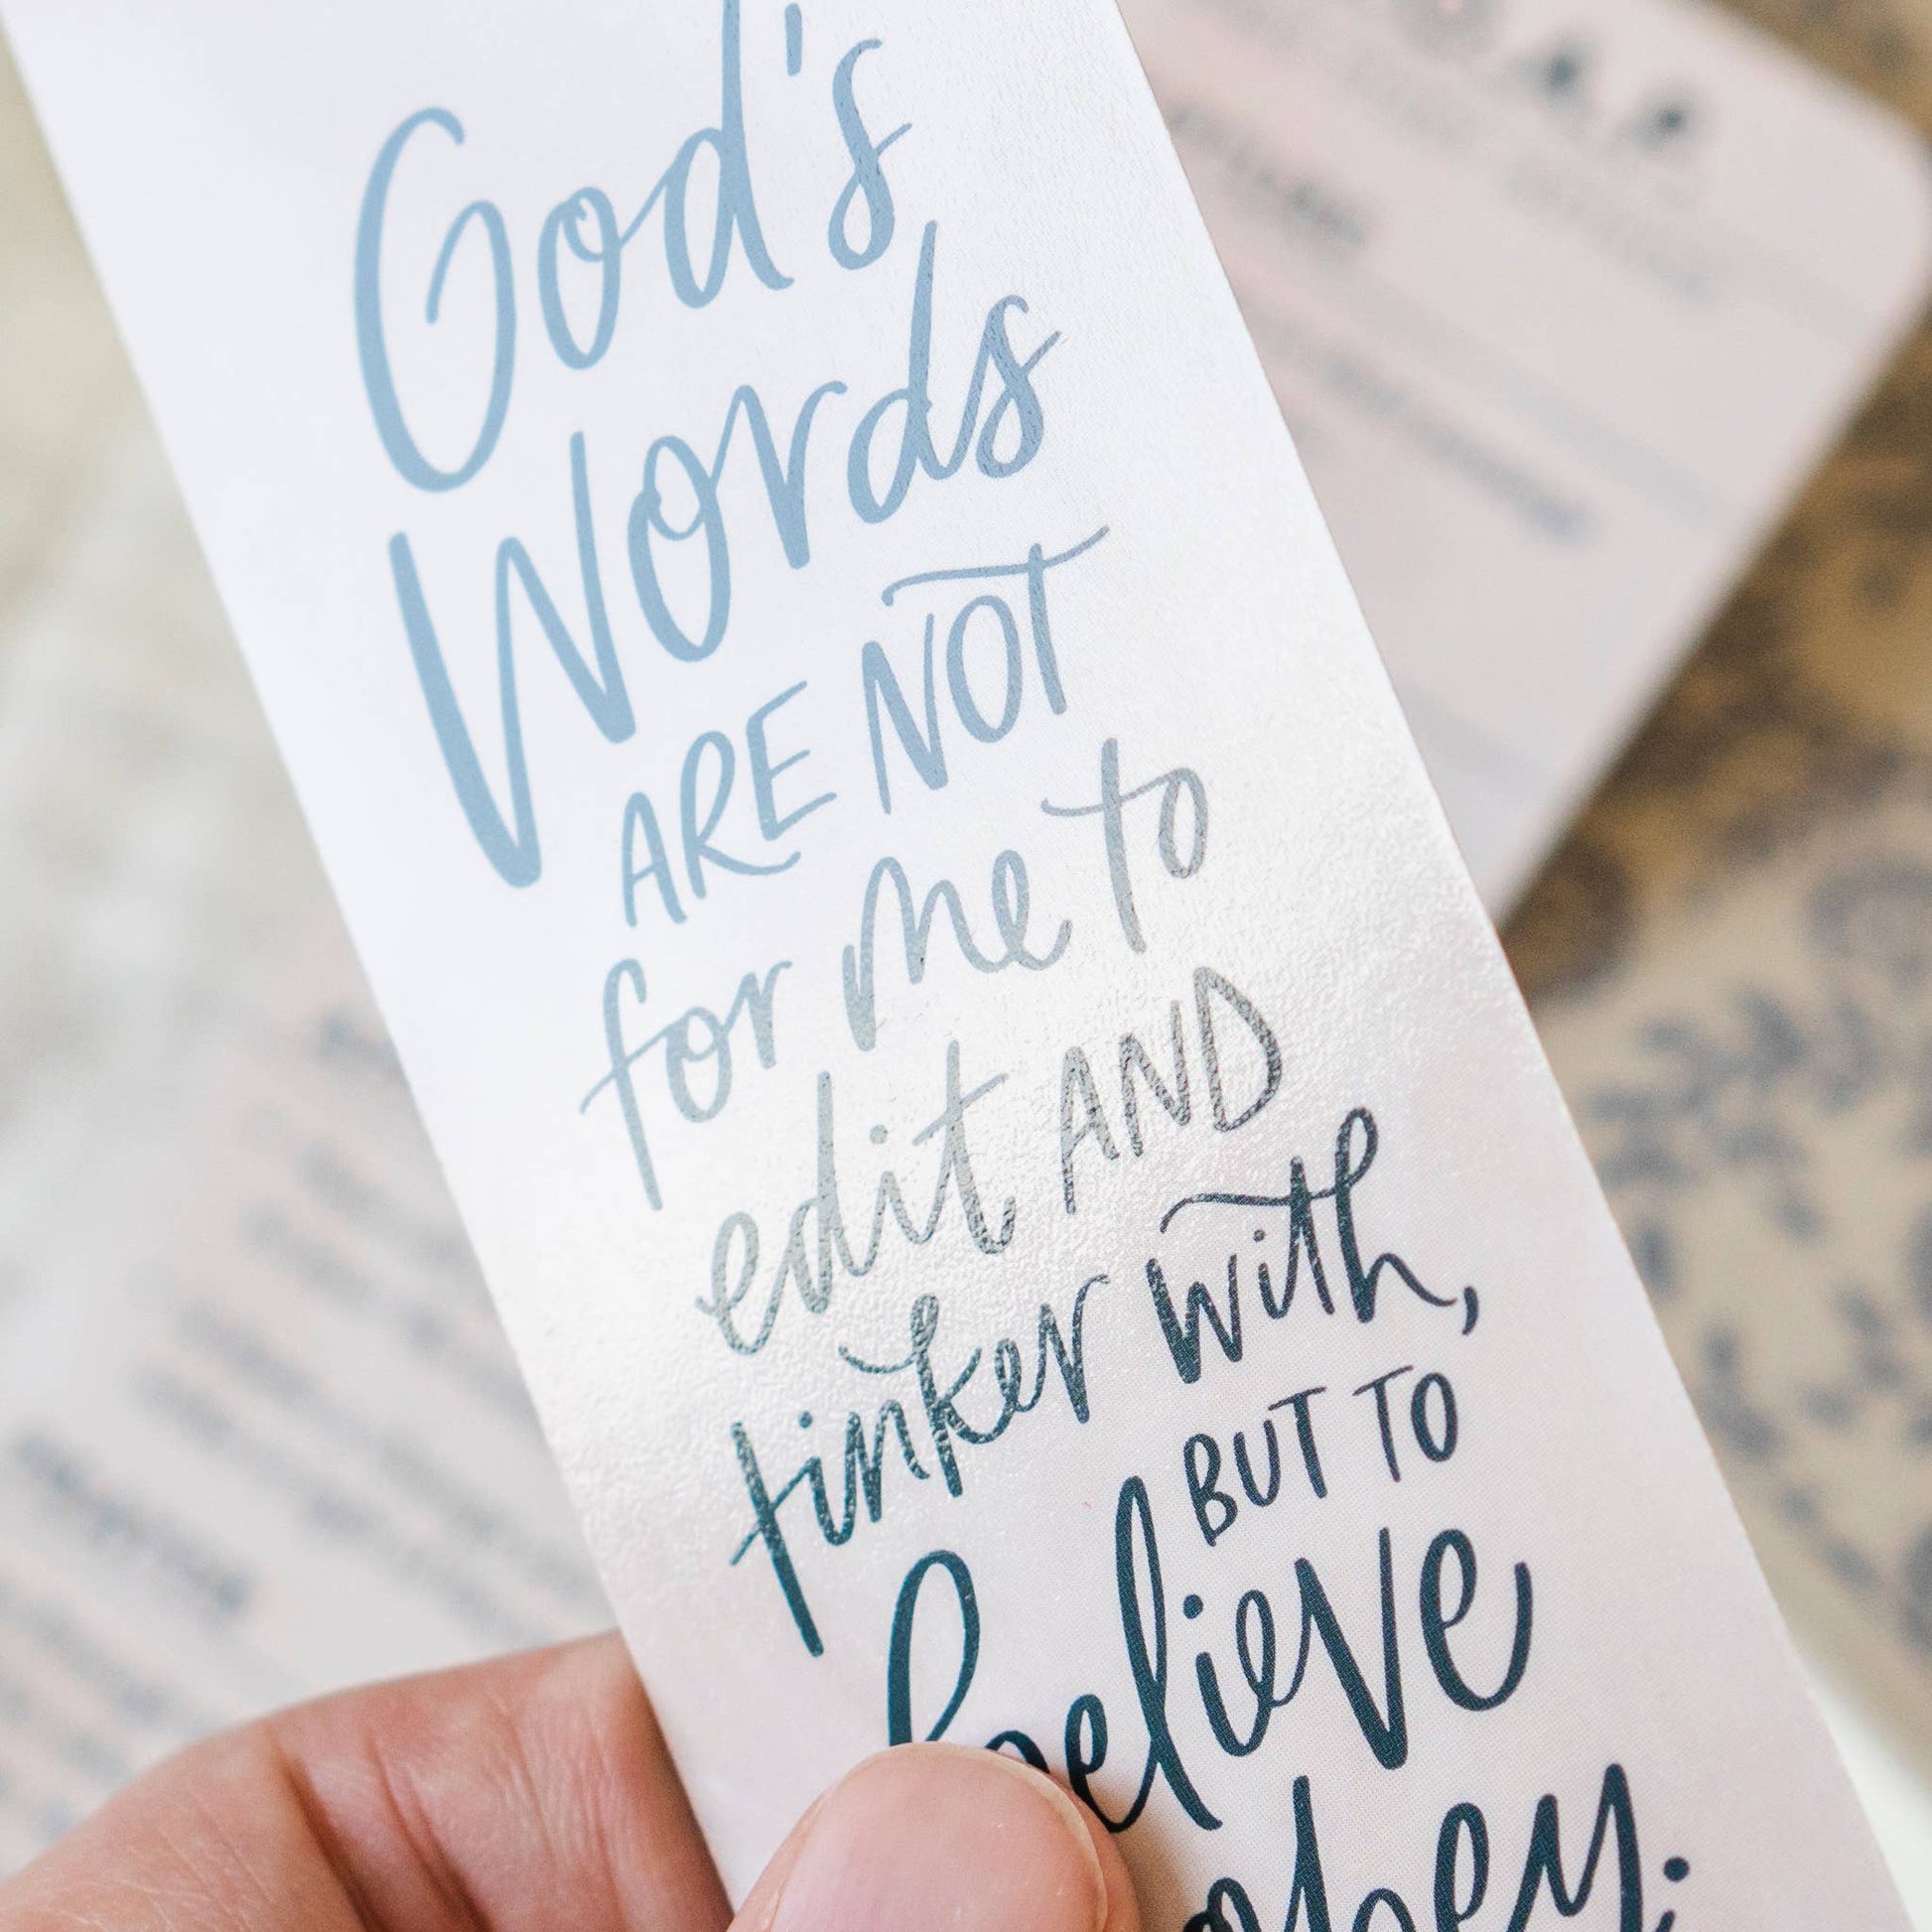 God's
Words
ARE NOT
for me to
edit AND
tinker with,
BUT TO
believe
obey.